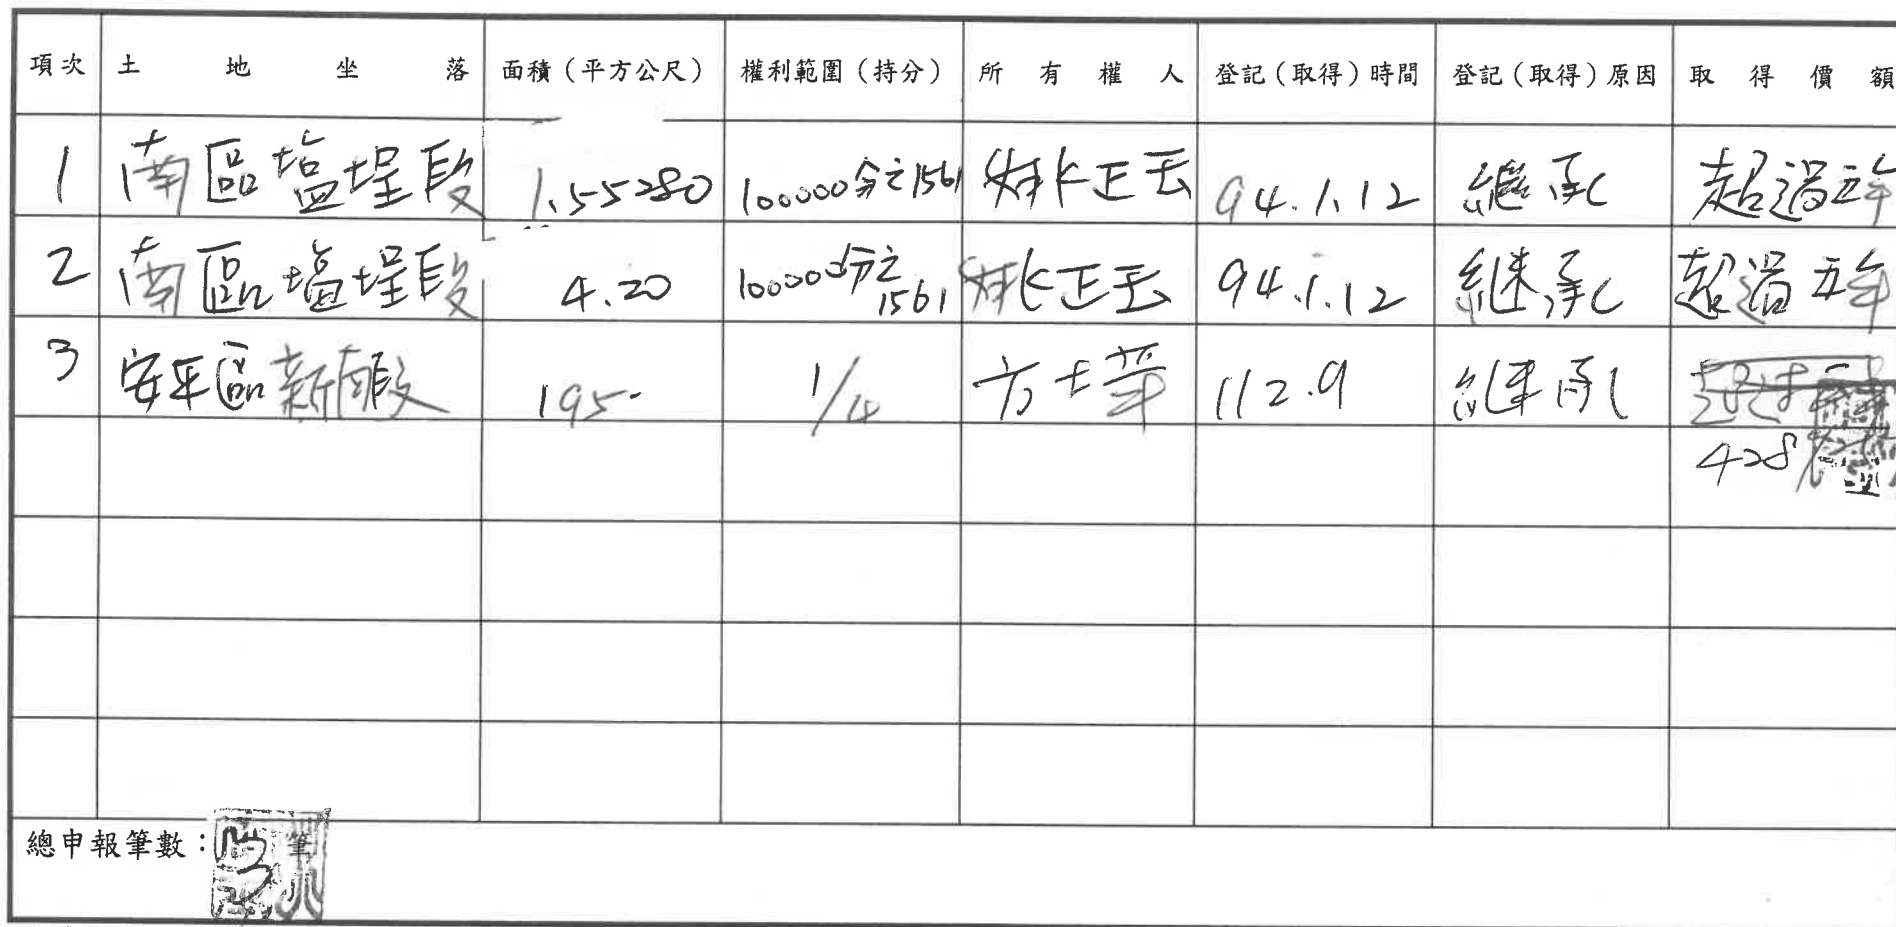 項次 土地坐落 面積(平方公尺) 權利範圍(持分) 所有權人 登記(取得)時間 登記(取得)原因 取得價額
1 南區塩埕段 1,552.80 100000分之1561 姚正玉 94.1.12 繼承 超過五年
2 南區塩埕段 4.20 100000分之1561 姚正玉 94.1.12 継承 超過五年
3 安平區新南段 195 1/4 方士華 112.9 継承
428
總申報筆數: 筆